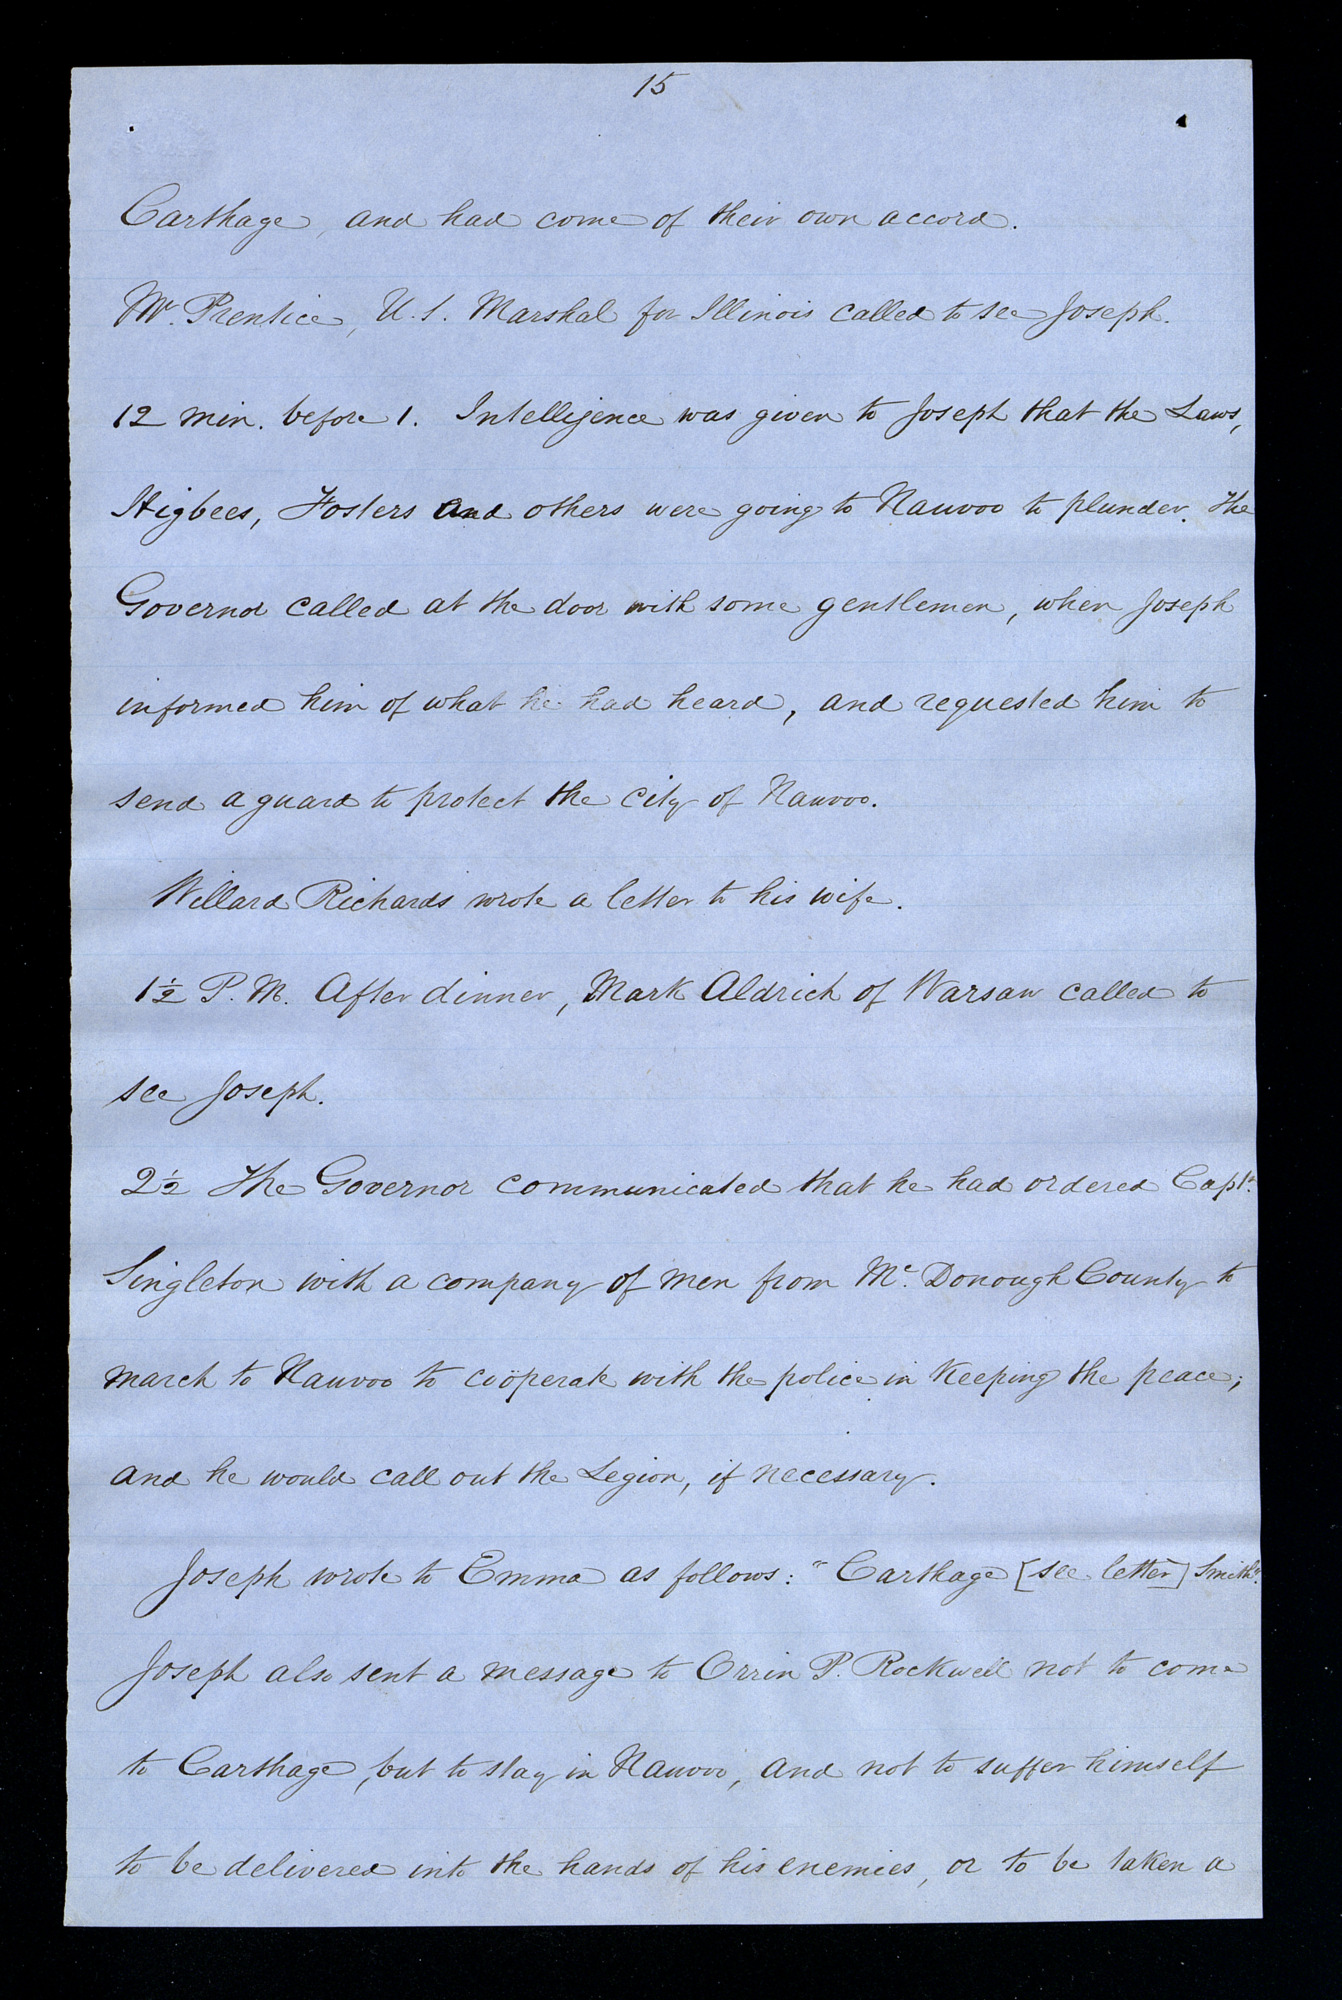 15
Carthage, and had come of their own accord.
Mr. Prentice, U.S. Marshal for Illinois called to see Joseph.
12 min. before 1. Intelligence was given to Joseph that the Laws,
Higbees, Fosters and others were going to Nauvoo to plunder. The
Governor called at the door with some gentlemen, when Joseph
informed him of what he had heard, and requested him to
send a guard to protect the city of Nauvoo.
Willard Richards wrote a letter to his wife.
1½ P.M. After dinner, Mark Aldrich of Warsaw called to
see Joseph.
2½ The Governor communicated that he had ordered Capt.
Singleton with a company of men from Mc.Donough County to
march to Nauvoo to coöperate with the police in keeping the peace;
and he would call out the Legion, if necessary.
Joseph wrote to Emma as follows: "Carthage [see letter] Smith".
Joseph also sent a message to Orrin P. Rockwell not to come
to Carthage, but to stay in Nauvoo, and not to suffer himself
to be delivered into the hands of his enemies, or to be taken a